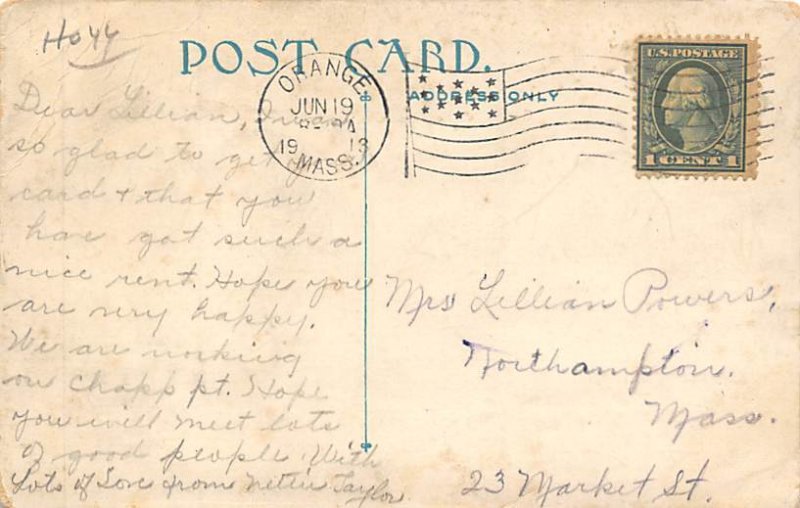 Ho44
POST CARD.
ADDRESS ONLY
ORANGE
JUN 19
19 13
MASS.
U.S. POSTAGE
1 CENT 1
Dear Lillian, I was
so glad to get
card + that you
have got such a
nice rent. Hope you
are very happy.
We are working
on Chapp pt. Hope
you will meet lots
of good people. With
Lots of Love from Nettie Taylor
Mrs Lillian Powers,
Northampton.
Mass.
23 Market St.